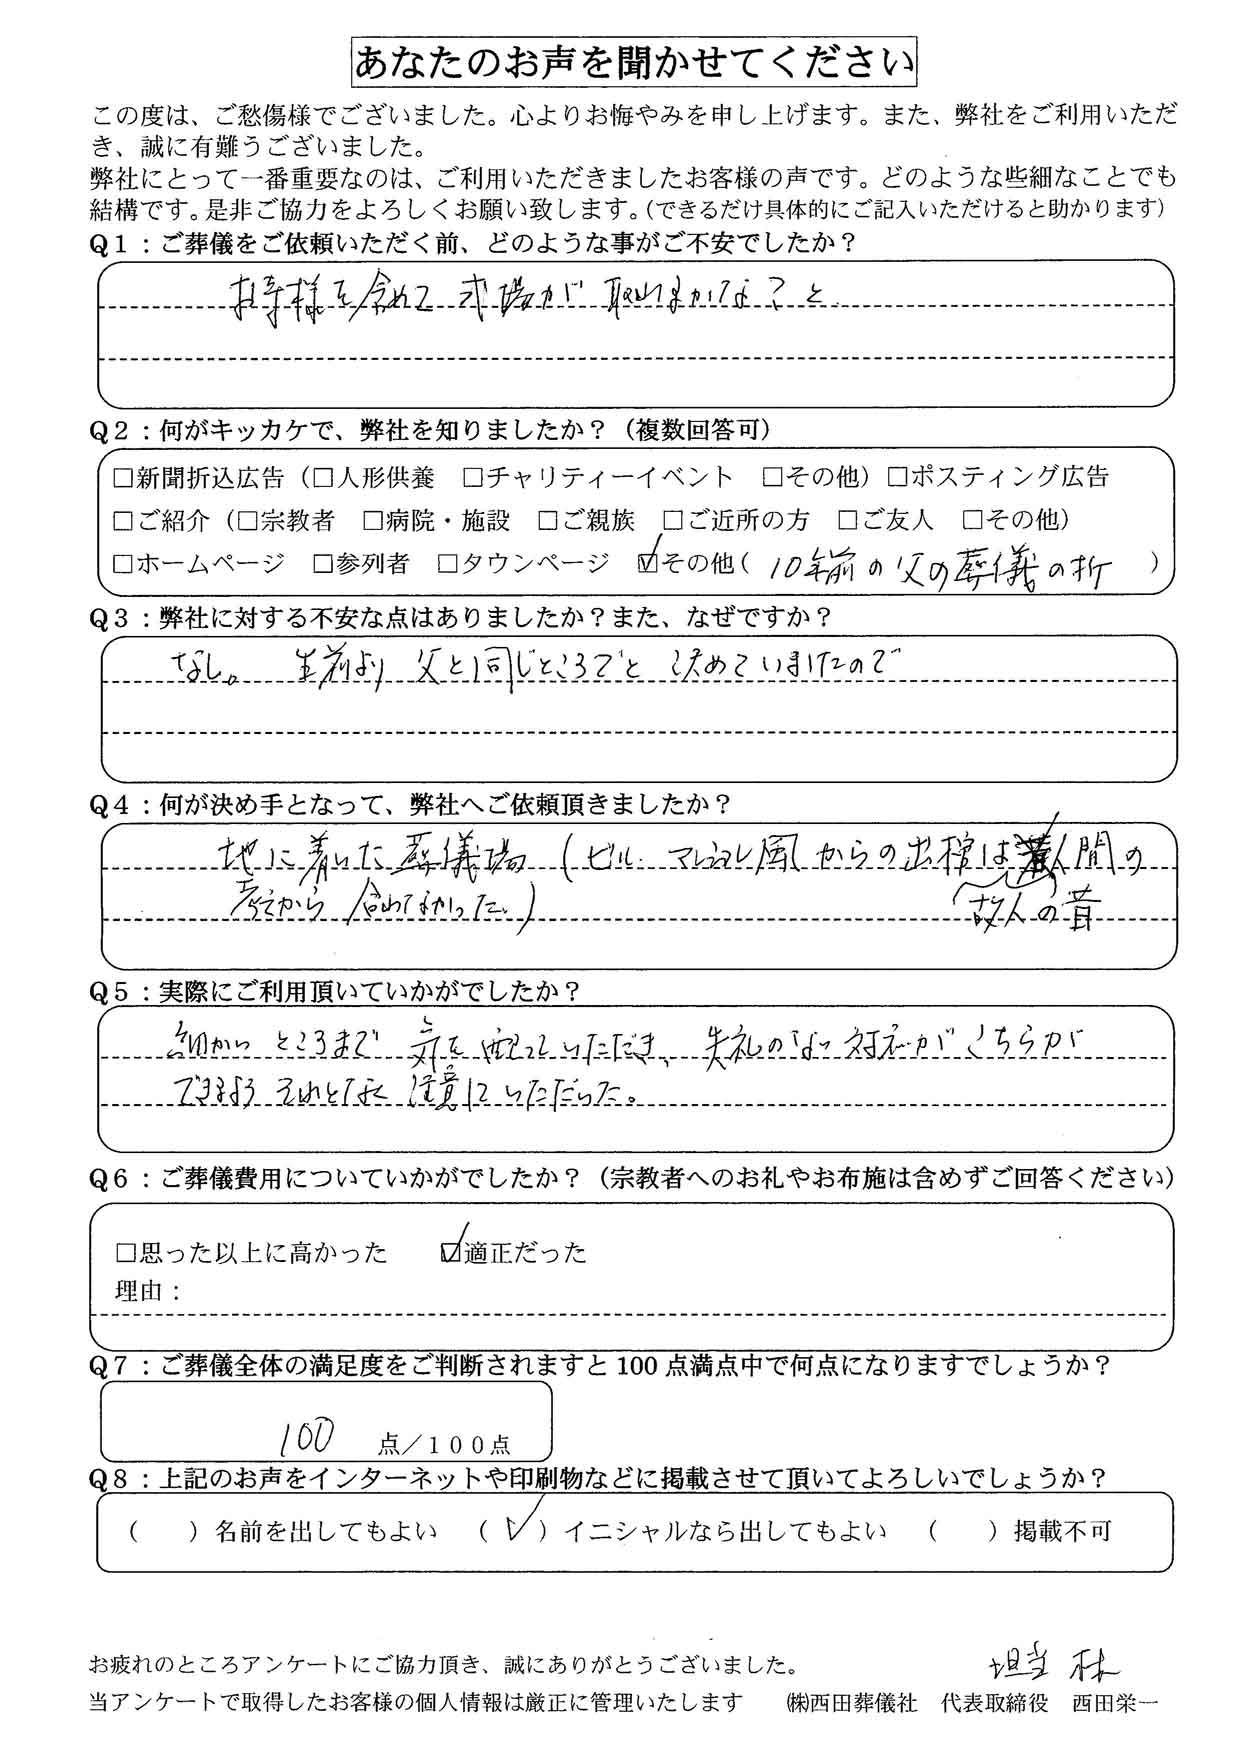 あなたのお声を聞かせてください
この度は、ご愁傷様でございました。心よりお悔やみを申し上げます。また、弊社をご利用いただ
き、誠に有難うございました。
弊社にとって一番重要なのは、ご利用いただきましたお客様の声です。どのような些細なことでも
結構です。是非ご協力をよろしくお願い致します。(できるだけ具体的にご記入いただけると助かります)
Q1:ご葬儀をご依頼いただく前、どのような事がご不安でしたか?
お寺様を含めて式場が取れるかな?と
Q2:何がキッカケで、弊社を知りましたか?(複数回答可)
□新聞折込広告(□人形供養 □チャリティーイベント □その他)□ポスティング広告
□ご紹介(□宗教者 □病院・施設 □ご親族 □ご近所の方 □ご友人 □その他)
□ホームページ □参列者 □タウンページ ☑その他( 10年前の父の葬儀の折 )
Q3:弊社に対する不安な点はありましたか?また、なぜですか?
なし。 生前より 父と同じところでと 決めていましたので
Q4:何が決め手となって、弊社へご依頼頂きましたか?
地に着いた葬儀場(ビル、マンション風からの出棺は 人間の
(故人の昔
考えから 含めてなかった。)
Q5:実際にご利用頂いていかがでしたか?
細かいところまで 気を配っていただき、失礼のない対応がこちらが
できるよう それとなく 注意していただいた。
Q6:ご葬儀費用についていかがでしたか?(宗教者へのお礼やお布施は含めずご回答ください)
□思った以上に高かった ☑適正だった
理由:
Q7:ご葬儀全体の満足度をご判断されますと100点満点中で何点になりますでしょうか?
100 点/100点
Q8:上記のお声をインターネットや印刷物などに掲載させて頂いてよろしいでしょうか?
( )名前を出してもよい (✓)イニシャルなら出してもよい ( )掲載不可
お疲れのところアンケートにご協力頂き、誠にありがとうございました。 担当 林
当アンケートで取得したお客様の個人情報は厳正に管理いたします ㈱西田葬儀社 代表取締役 西田栄一